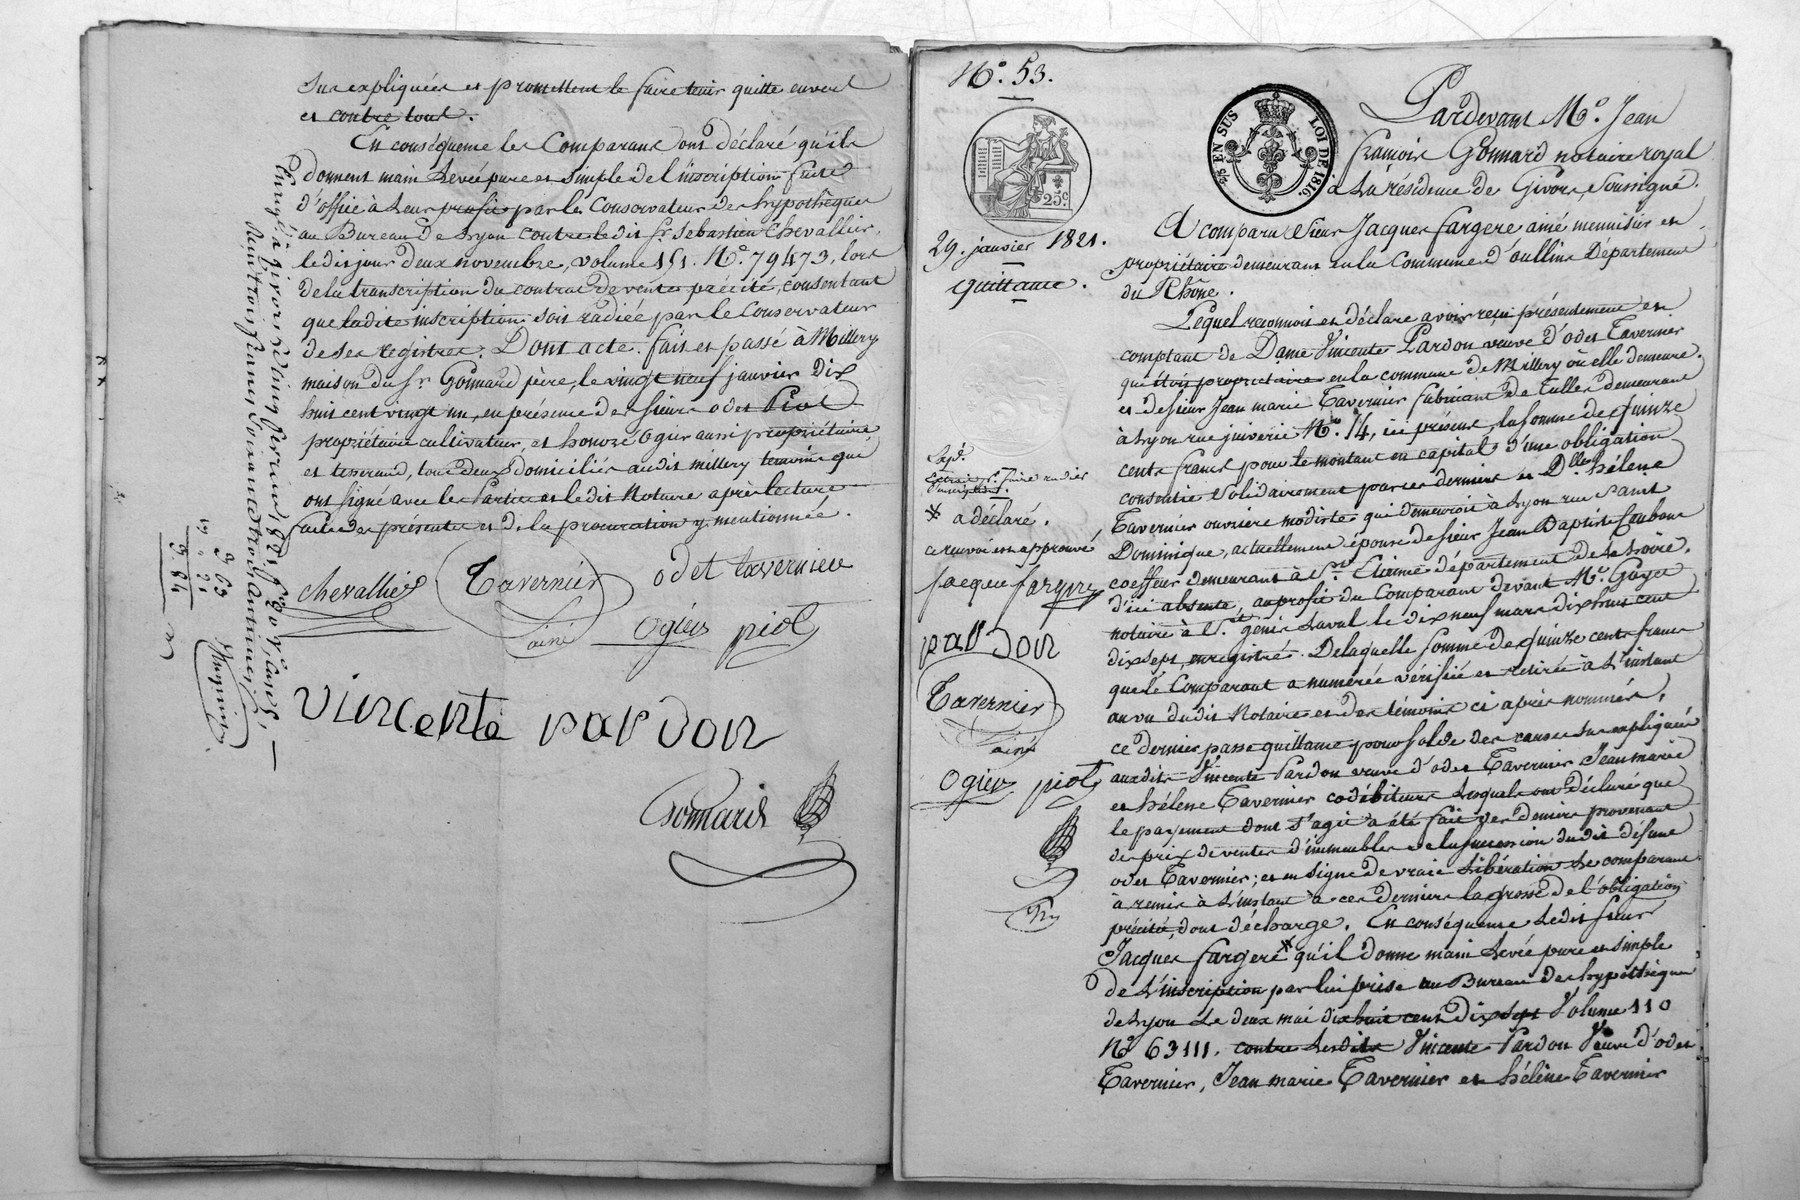 Sus expliquées et promettent le faire tenir quitte envers
et contre tous.
En conséquence les Comparans ont déclaré qu'ils
donnent main levée pure et simple de l'inscription faite
d'office à leur profit par le Conservateur des hypothèques
au Bureau de Lyon contre ledit Sr. Sebastien Chevallier,
ledit jour deux novembre, volume 151. No. 79473, lors
de la transcription du contrat de vente précité, consentant
que ladite inscription soit radiée par le Conservateur
de ses registres. Dont acte. fait et passé à Millery
maison du Sr. Gonnard père, le vingt neuf janvier dix
huit cent vingt un, en présence des sieurs odet Piot
propriétaire cultivateur, et honoré Ogier aussi propriétaire
et tisserand, tous deux domiciliés audit millery témoins qui
ont signé avec les Parties et ledit Notaire après lecture
faite des présentes et de la procuration y mentionnée.
chevallier Tavernier odet tavernier
ainé Ogier piot
vincente pardon
Gonnard
Enregistré à givors le cinq fevrier 1821, fo. 20 Vo. cases
Reçu trois francs soixante trois centimes
3 63
" 21
3 84
No. 53.
25c
¼ EN SUS LOI DE 1816.
29. janvier 1821.
quittance.
Expé.
Extrait pr. faire radier
l'inscription.
* a déclaré.
ce renvoi est approuvé
jacque fargere
pardon
Tavernier
ainé
Ogier piot
Pardevant Me. Jean
françois Gonnard notaire royal
à la résidence de Givors, soussigné.
A comparu Sieur Jacques fargere ainé menuisier et
propriétaire demeurant en la Commune d'oullins Département
du Rhône.
Lequel reconnoit et déclare avoir reçu présentement et
comptant de Dame Vincente Pardon veuve d'odet Tavernier
qui étoit propriétaire en la commune de Millery où elle demeure.
et de sieur Jean marie Tavernier fabricant de Tulles demeurant
à Lyon rue juiverie No. 14, ici présents, la somme de quinze
cents francs pour le montant en capital d'une obligation
consentie solidairement par ces derniers et Dlle. hélène
Tavernier ouvrière modiste qui demeuroit à Lyon rue Saint
Dominique, actuellement épouse de sieur Jean Baptiste
coeffeur demeurant à St. Etienne département de la Loire,
d'ici absente, au profit du Comparant devant Me. Guyot
notaire à St. genis Laval le dix neuf mars dix huit cent
dix sept, enregistrée. De laquelle somme de quinze cents francs
que le Comparant a numérée vérifiée et retirée à l'instant
au vu dudit Notaire et des témoins ci après nommés,
ce dernier passe quittance pour solde des causes sus expliquées
auxdits Vincente Pardon veuve d'odet Tavernier Jean marie
et hélène Tavernier codébiteurs lesquels ont déclaré que
le payement dont s'agit a été fait des deniers provenant
des prix de ventes d'immeubles de la succession dudit défunt
odet Tavernier; et en signe de vraie libération le comparant
a remis à l'instant à ces derniers la grosse de l'obligation
précitée, dont décharge. En conséquence ledit sieur
Jacques fargere * qu'il donne main levée pure et simple
de l'inscription par lui prise au Bureau des hypothèques
de Lyon le deux mai dix huit cent dix sept Volume 110
No. 63111. contre lesdits Vincente Pardon Veuve d'odet
Tavernier, Jean marie Tavernier et hélène Tavernier